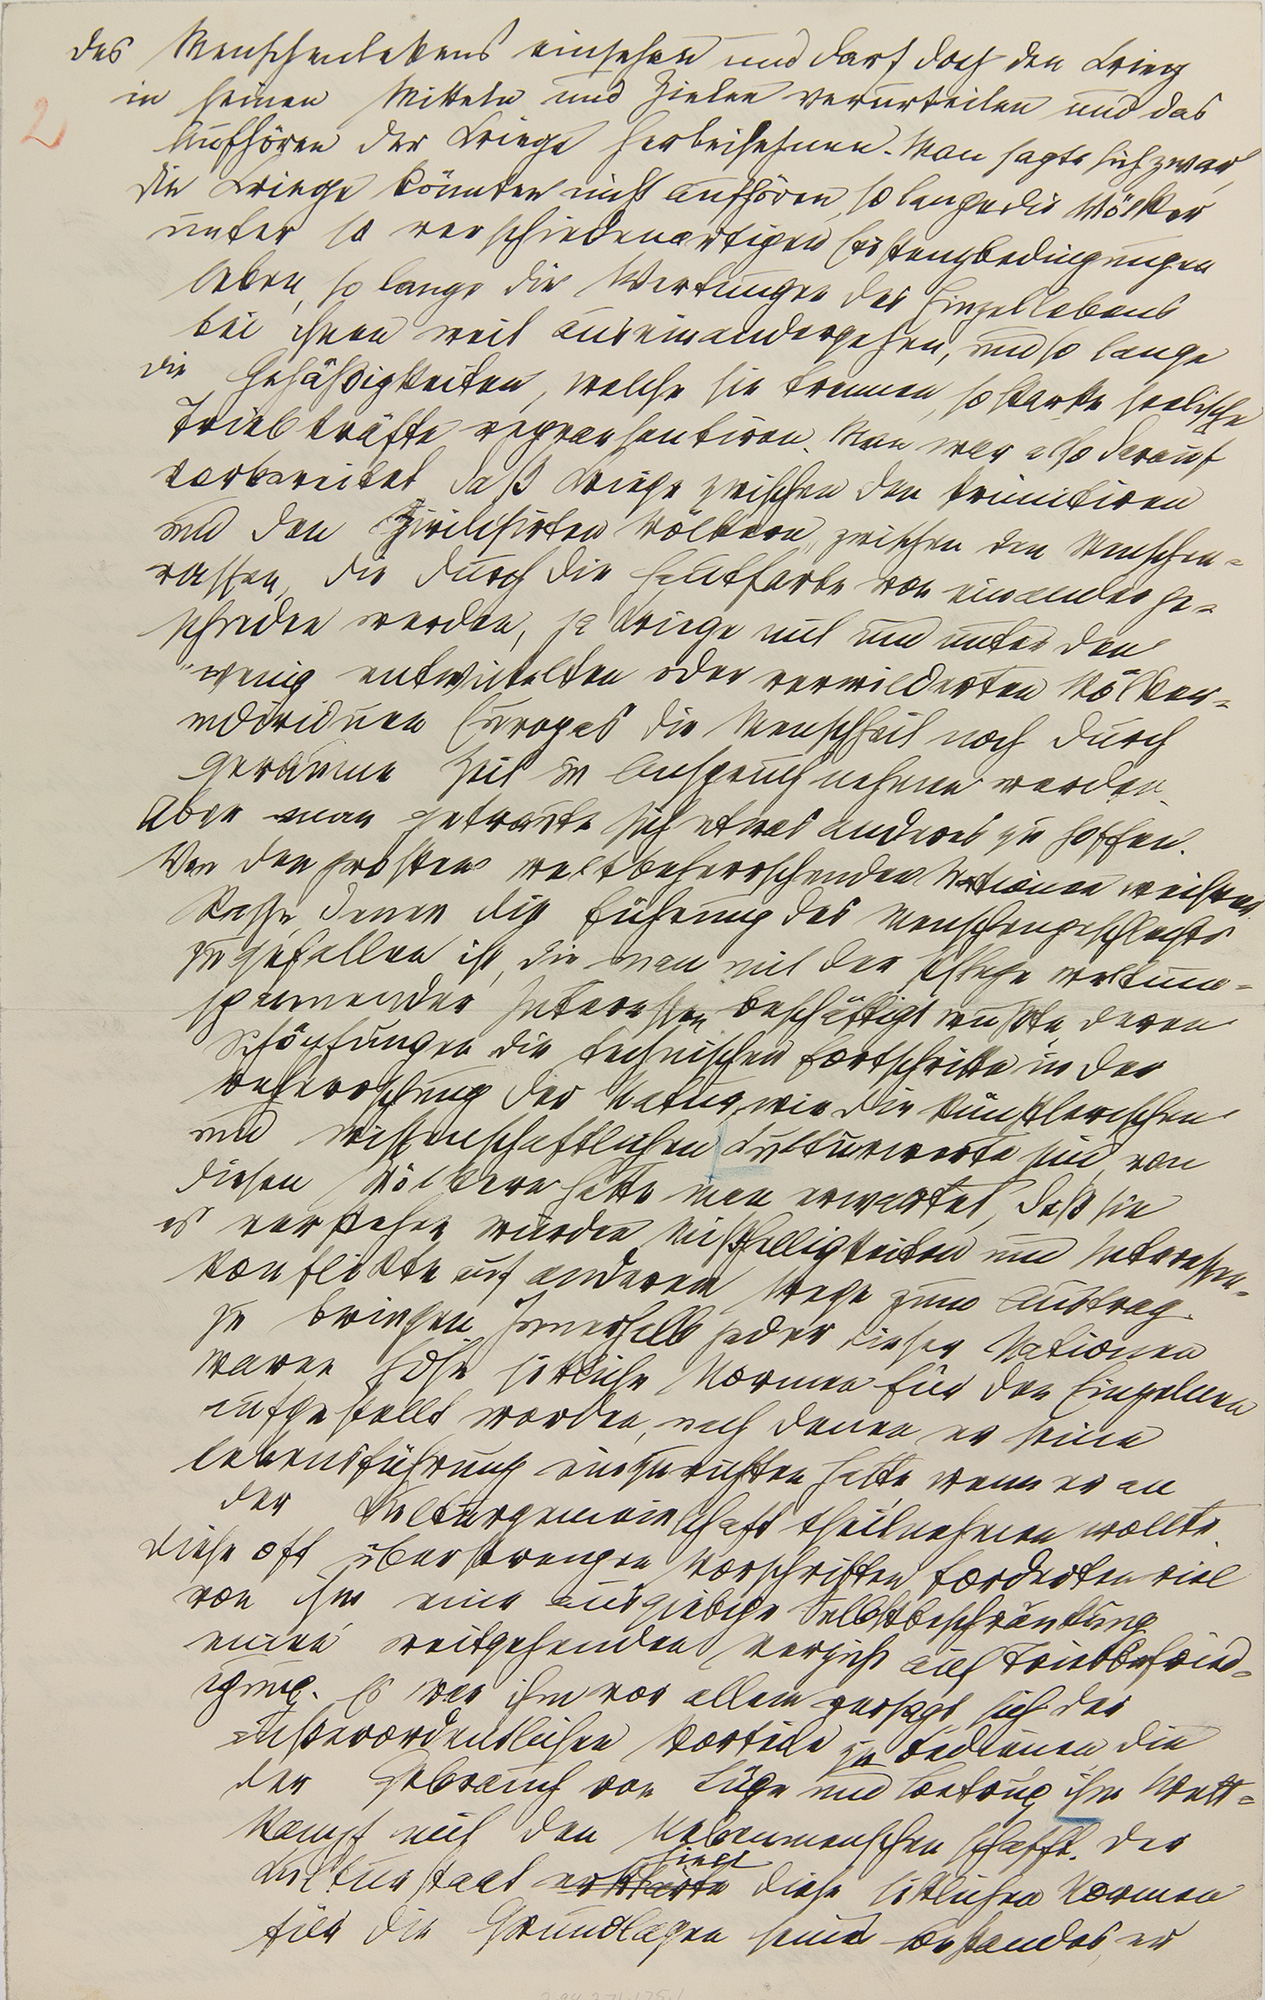 des Menschenlebens einsehen und darf doch den Krieg
2
in seinen Mitteln und Zielen verurteilen und das
Aufhören der Kriege herbeisehnen. Man sagte sich zwar,
die Kriege könnten nicht aufhören, so lange die Völker
unter so verschiedenartigen Existenzbedingungen
leben, so lange die Wertungen des Einzellebens
bei ihnen weit auseinandergehen, und so lange
die Gehäßigkeiten, welche sie trennen, so starke seelische
Triebkräfte repraesentiren. Man war also darauf
vorbereitet daß Kriege zwischen den primitiven
und den zivilisirten Völkern, zwischen den Menschen=
rassen, die durch die Hautfarbe von einander ge=
schieden werden, ja Kriege mit und unter den
wenig entwickelten oder verwilderten Völker=
individuen Europas die Menschheit noch durch
geraume Zeit in Anspruch nehmen werden.
Aber man getraute sich etwas anderes zu hoffen.
Von den großen weltbeherrschenden Nationen weißer
Rasse, denen die Führung des Menschengeschlechts
zugefallen ist, die man mit der Pflege weltum=
spannender Interessen beschäftigt wußte, deren
Schöpfungen die technischen Fortschritte in der
Beherrschung der Natur, wie die künstlerischen
und wissenschaftlichen Kulturwerte sind, von
diesen Völkern hatte man erwartet, daß sie
es verstehen würden Mißhelligkeiten und Interessen=
konflikte auf anderem Wege zum Austrag
zu bringen. Innerhalb jeder dieser Nationen
waren hohe sittliche Normen für den Einzelnen
aufgestellt worden, nach denen er seine
Lebensführung einzurichten hatte, wenn er an
der Kulturgemeinschaft theilnehmen wollte.
Diese oft überstrengen Vorschriften forderten viel
von ihm eine ausgiebige Selbstbeschränkung
einen weitgehenden Verzicht auf Triebbefried=
igung. Es war ihm vor allem versagt, sich der
außerordentlichen Vorteile zu bedienen die
der Gebrauch von Lüge und Betrug im Wett=
kampf mit den Nebenmenschen schafft. Der
Kulturstaat erklärte hielt diese sittlichen Normen
für die Grundlagen seines Bestandes, er